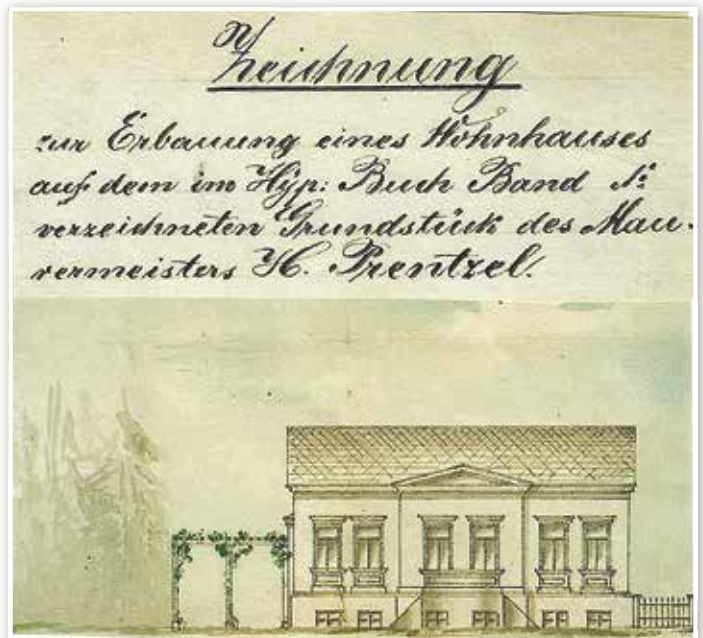 Zeichnung
zur Erbauung eines Wohnhauses
auf dem im Hyp: Buch Band №
verzeichneten Grundstück des Mau-
rermeisters H. Prentzel.